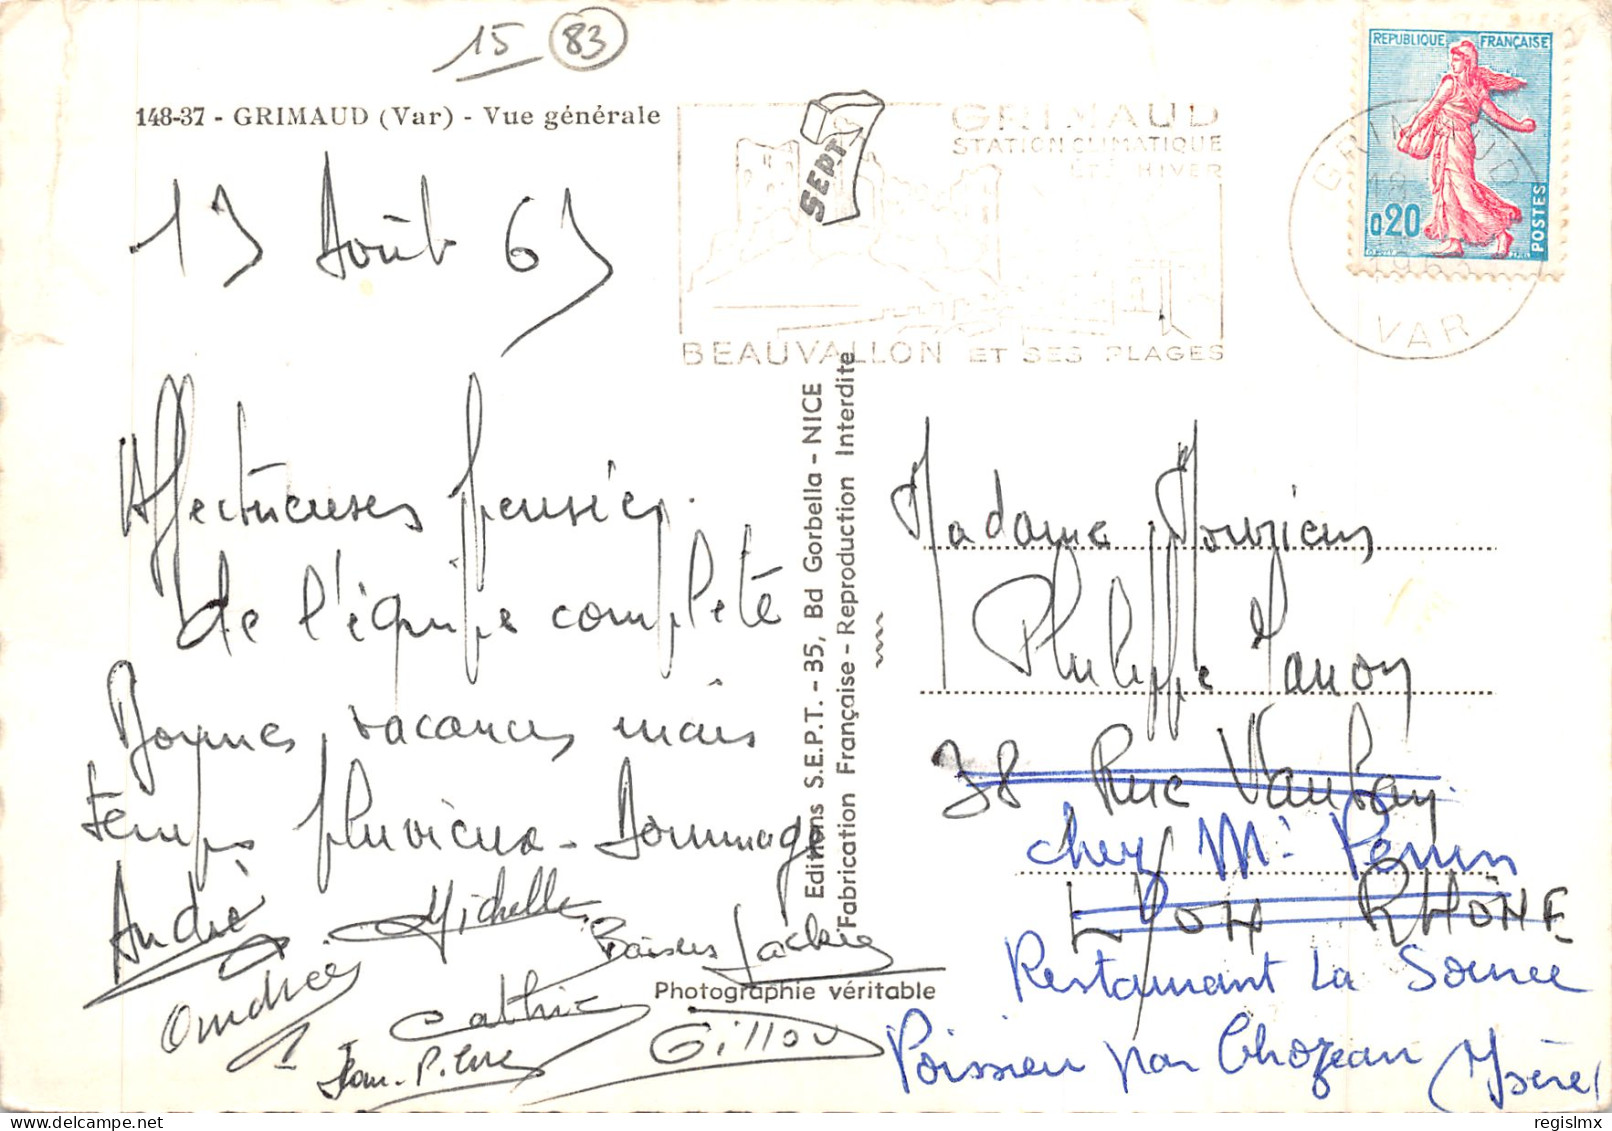 15 83
148-37 - GRIMAUD (Var) - Vue générale
SEPT
GRIMAUD
STATION CLIMATIQUE
ÉTÉ HIVER
BEAUVALLON ET SES PLAGES
REPUBLIQUE FRANÇAISE
0,20
POSTES
GRIMAUD
VAR
13 Août 63
Affectueuses pensées
de l'équipe complète
Bonnes vacances mais
temps pluvieux - Dommage
André Michelle Baisers Jackie
Andrée Cathie
Jean-Pierre Gillou
Editions S.E.P.T. - 35, Bd Gorbella - NICE
Fabrication Française - Reproduction Interdite
Photographie véritable
Madame
Philippe Manon
38 Rue Vauban
chez Mr Perrin
LYON RHÔNE
Restaurant La Source
Poissieu par Chozeau (Isère)
regislmx
www.delcampe.net